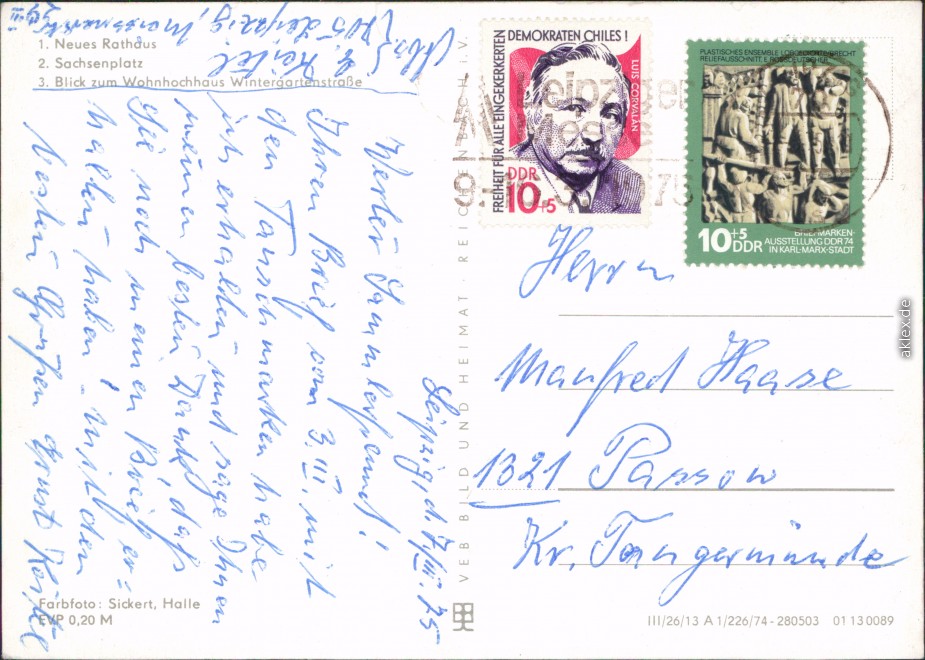 1. Neues Rathaus
2. Sachsenplatz
3. Blick zum Wohnhochhaus Wintergartenstraße
Leipzig, d. 7. III. 75
Werter Sammlerfreund!
Ihren Brief vom 3. III. mit
den Tauschmarken habe
ich erhalten und sage Ihnen
meinen besten Dank, daß
Sie noch meinen Brief er=
halten haben. Mit den
besten Grüßen Ernst
705 Leipzig,
VEB BILD UND HEIMAT · REICHENBACH I. V.
FREIHEIT FÜR ALLE EINGEKERKERTEN
DEMOKRATEN CHILES!
LUIS CORVALÁN
DDR
10+5
PLASTISCHES ENSEMBLE LOBGEDICHTE/BRECHT
10+5
DDR
BRIEFMARKEN-
AUSSTELLUNG DDR 74
IN KARL-MARX-STADT
Leipziger
Messe
Herrn
Manfred Haase
1321 Passow
Kr. Tangermünde
Farbfoto: Sickert, Halle
EVP 0,20 M
III/26/13 A 1/226/74 - 280503 01 13 0089
aklex.de